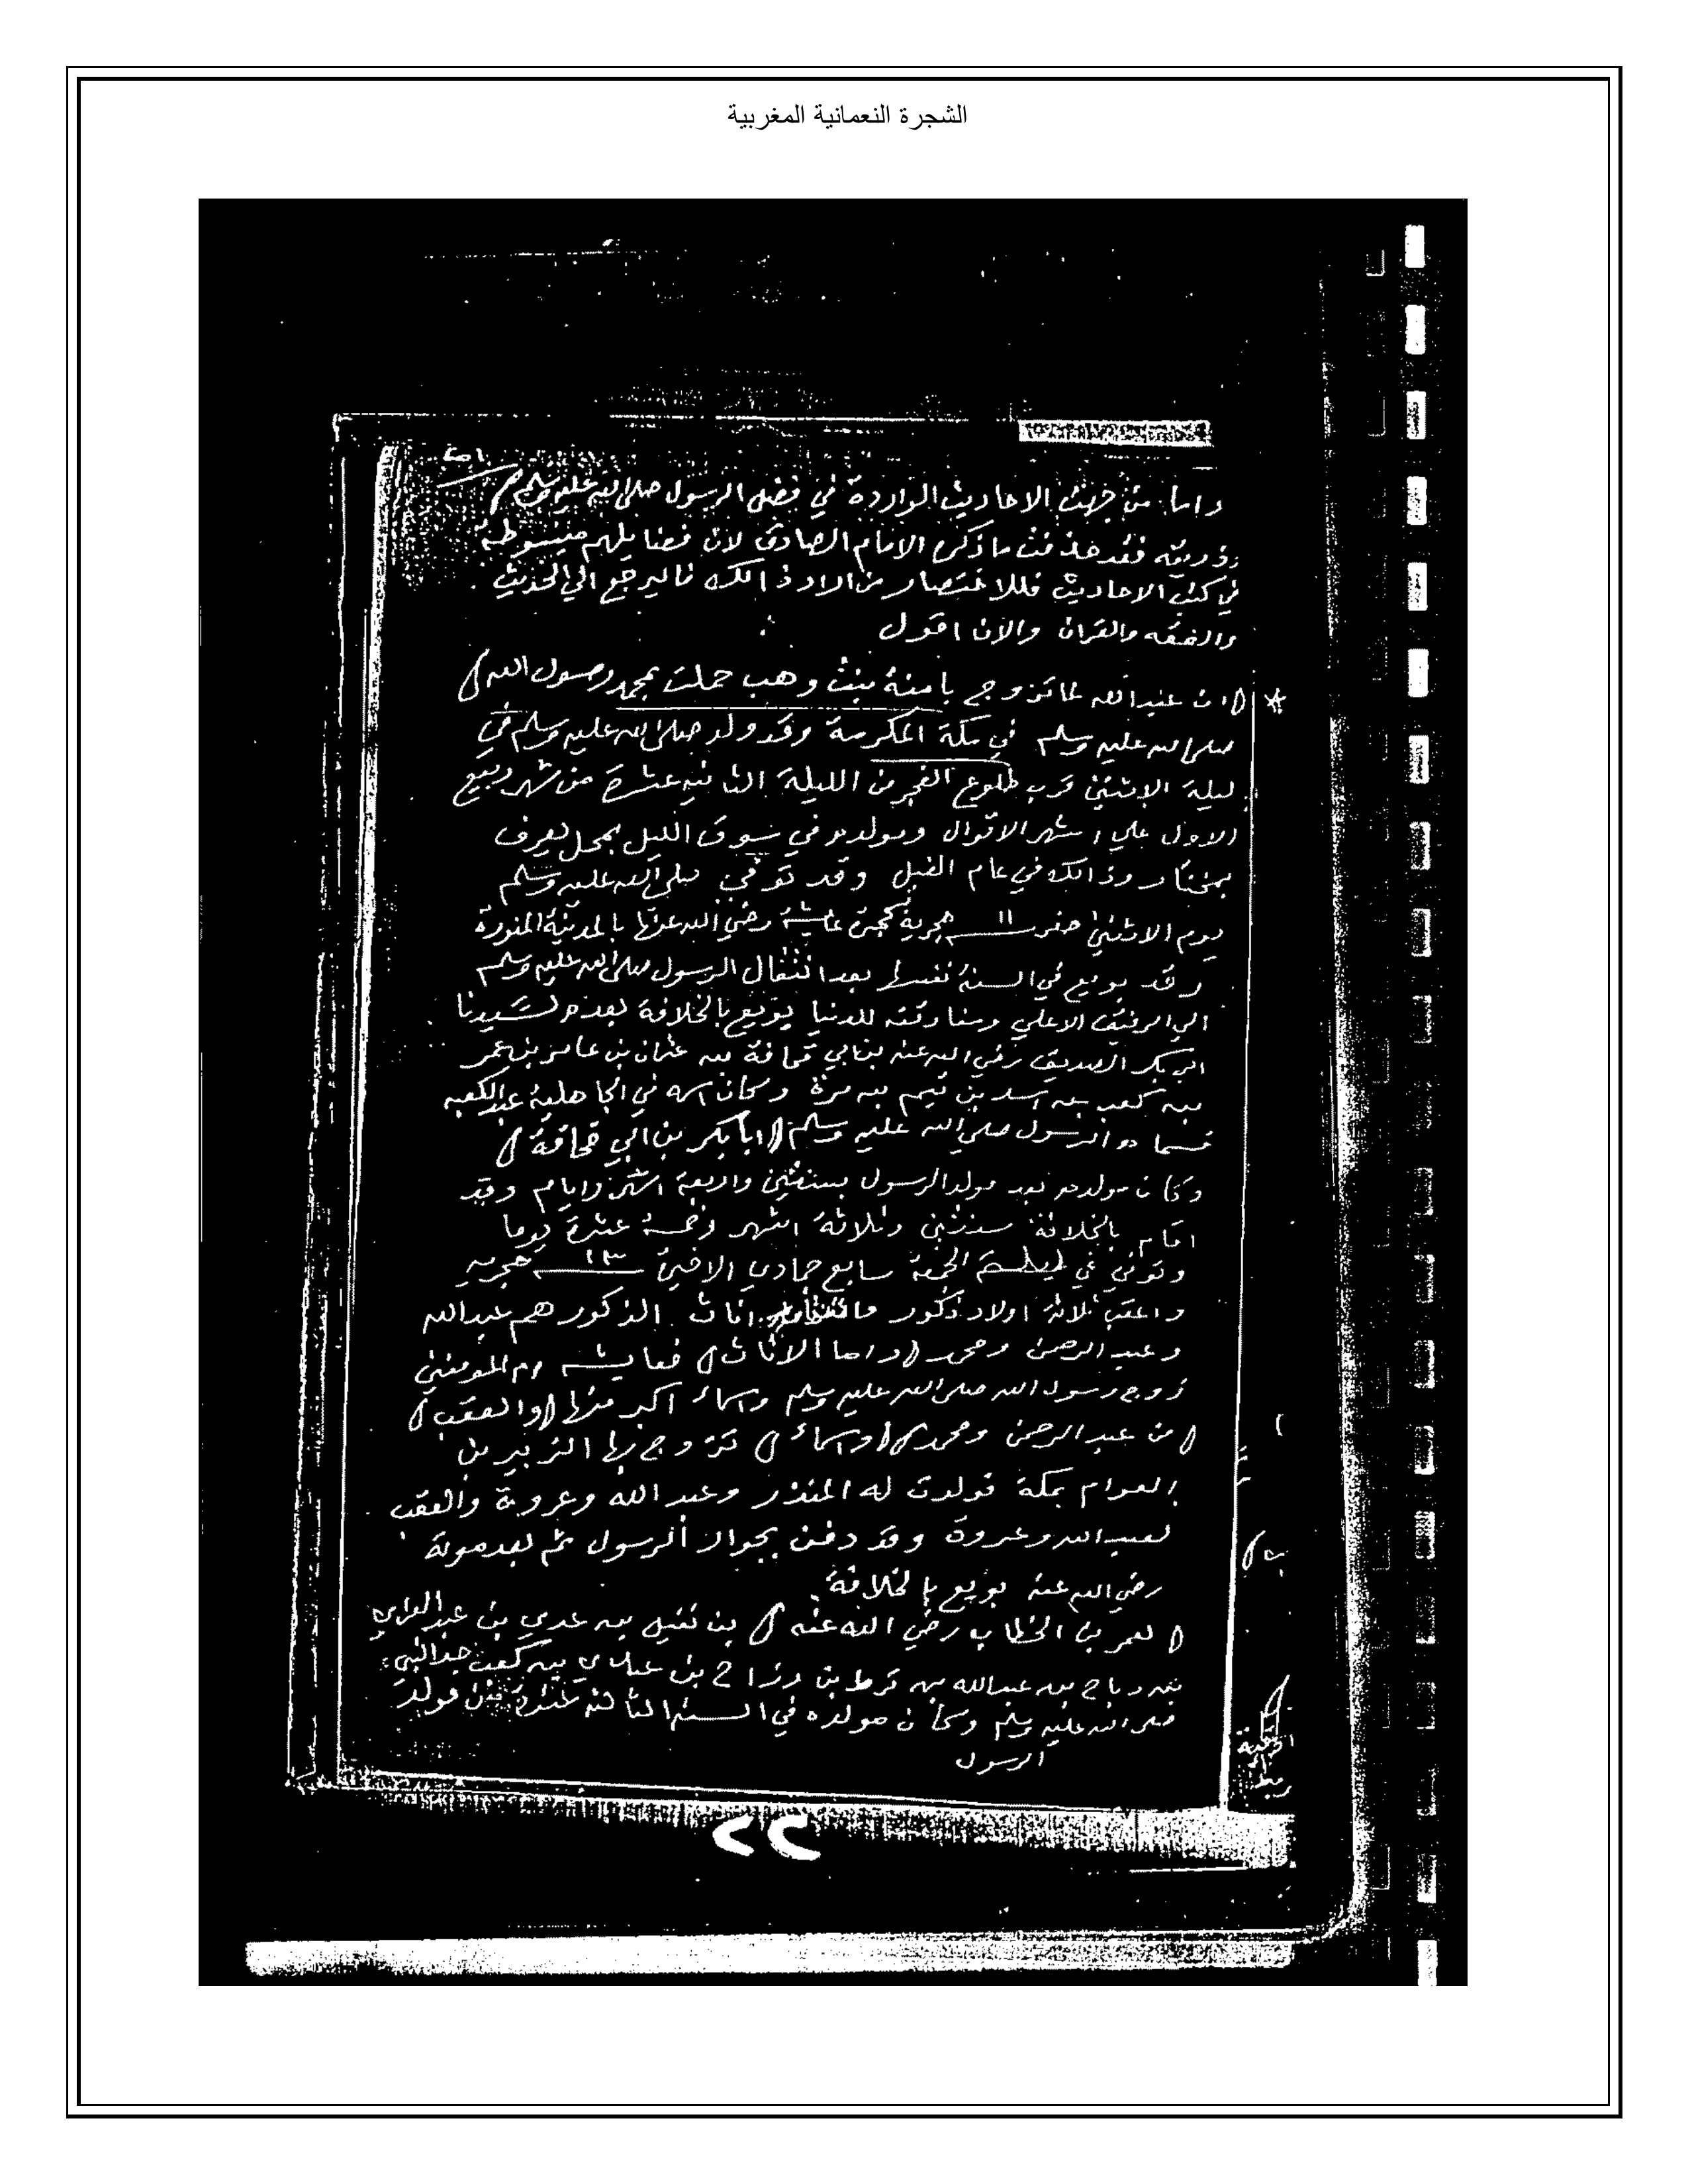 الشجرة النعمانية المغربية
واما من جهت الاحاديث الواردة في فضل الرسول صلى الله عليه وسلم
وذريته فقد حذفت ما ذكره الامام الصادق لان فضايلهم مبسوطة
في كتب الاحاديث فللاختصار من الاد ذالك فاليرجع الي الحديث
والفقه والقران والان اقول
ان عبدالله لما تزوج بامنة بنت وهب حملت بمحمد رسول الله
صلى الله عليه وسلم في مكة المكرمة وقد ولد صلى الله عليه وسلم في
ليلة الاثنين قرب طلوع الفجر من الليلة الثانيه عشرة من شهر ربيع
الاول علي اشهر الاقوال ومولده في سوق الليل بمحل يعرف
وذالك في عام الفيل وقد توفي صلى الله عليه وسلم
يوم الاثنين صفر ١١ هجرية بحجرة عايشة رضي الله عنها بالمدينة المنورة
وقد بويع في السنة نفسها بعد انتقال الرسول صلى الله عليه وسلم
الى الرفيق الاعلي ومفارقته للدنيا بويع بالخلافة بعده لسيدنا
ابي بكر الصديق رضي الله عنه بن ابي قحافة بن عثمان بن عامر بن عمر
بن كعب بن اسد بن تيم بن مرة وكان اسمه في الجاهلية عبد الكعبه
فسماه الرسول صلى الله عليه وسلم ابا بكر بن ابي قحافة
وكان مولده بعد مولد الرسول بسنتين واربعة اشهر وايام وقد
اقام بالخلافة سنتين وثلاثة اشهر وخمسة عشرة يوما
وتوفي في ليلة الجمعة سابع جمادي الاخرة ١٣ هجريه
واعقب ثلاثة اولاد ذكور اناث الذكور هم عبدالله
وعبد الرحمن ومحمد واما الاناث فعايشه ام المومنين
زوج رسول الله صلى الله عليه وسلم واسماء اكبر منها والعقب
من عبد الرحمن ومحمد واسماء تزوج بها الزبير بن
العوام بمكة فولدت له المنذر وعبد الله وعروة والعقب
لعبد الله وعروة وقد دفن بجوار الرسول ثم بعد موته
رضي الله عنه بويع بالخلافة
لعمر بن الخطاب رضي الله عنه بن نفيل بن عدي بن عبد العزي
بن رباح بن عبدالله بن قرط بن رزاح بن عدي بن كعب جد النبي
صلى الله عليه وسلم وكان مولده في السنة الثالثة عشرة من مولد
الرسول
٢٢